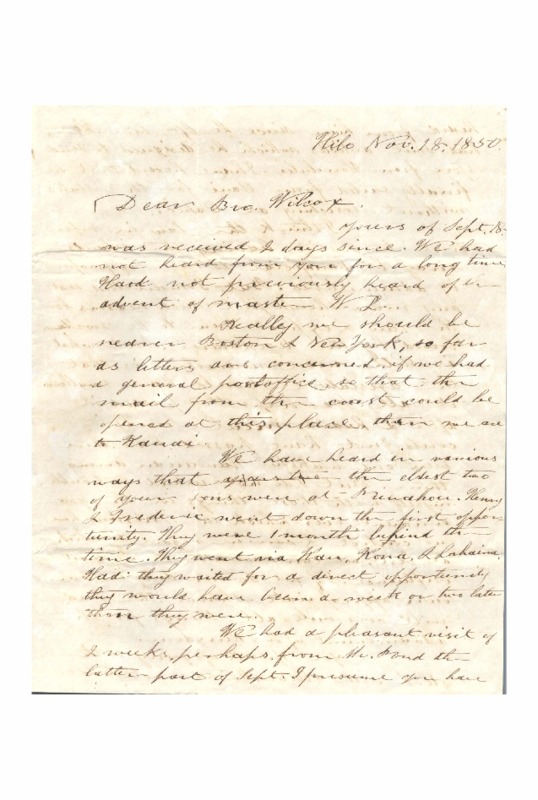 Hilo Nov. 18. 1850.
Dear Bro. Wilcox,
Yours of Sept. 18-
was received 2 days since. We had
not heard from you for a long time.
Had not previously heard of the
advent of master W. L.
Really we should be
nearer Boston & New York, so far
as letters are concerned, if we had
a general postoffice so that the
mail from the coast could be
opened at this place, than we are
to Kauai.
We have heard in various
ways that the eldest two
of your sons were at Punahou. Henry
& Frederic went down the first oppor
tunity. They were 1 month behind the
time. They went via Kau, Kona, & Lahaina.
Had they waited for a direct opportunity
they would have been a week or two later
than they were.
We had a pleasant visit of
2 weeks, perhaps, from Mr. Pond the
latter part of Sept. I presume you have